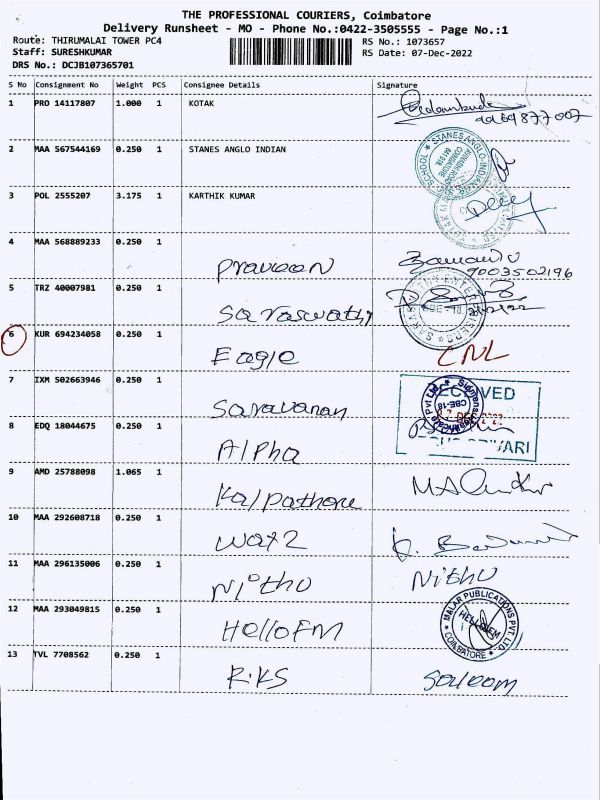 THE PROFESSIONAL COURIERS, Coimbatore
Delivery Runsheet - MO - Phone No.:0422-3505555 - Page No.:1
Route: THIRUMALAI TOWER PC4
Staff: SURESHKUMAR
DRS No.: DCJB107365701
RS No.: 1073657
RS Date: 07-Dec-2022
S Mo Consignment No Weight PCS Consignee Details Signature
1 PRO 14117807 1.000 1 KOTAK
2 MAA 567544169 0.250 1 STANES ANGLO INDIAN
3 POL 2555207 3.175 1 KARTHIK KUMAR
4 MAA 568889233 0.250 1 Praveen
9003502196
5 TRZ 40007981 0.250 1 Saraswathy
6 KUR 694234058 0.250 1 Eagle CNL
7 IXM 502663946 0.250 1 Saravanan
8 EDQ 18044675 0.250 1 Alpha
9 AMD 25788098 1.065 1
10 MAA 292608718 0.250 1
11 MAA 296135006 0.250 1 Nithu Nithu
12 MAA 293049815 0.250 1 Hello FM
MALAR PUBLICATIONS PVT. LTD.
HELLO FM
COIMBATORE
13 TVL 7708562 0.250 1 R.KS Saleem